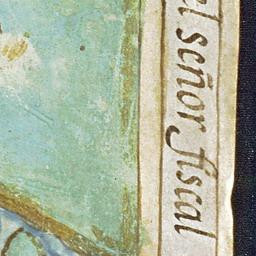 el señor fiscal